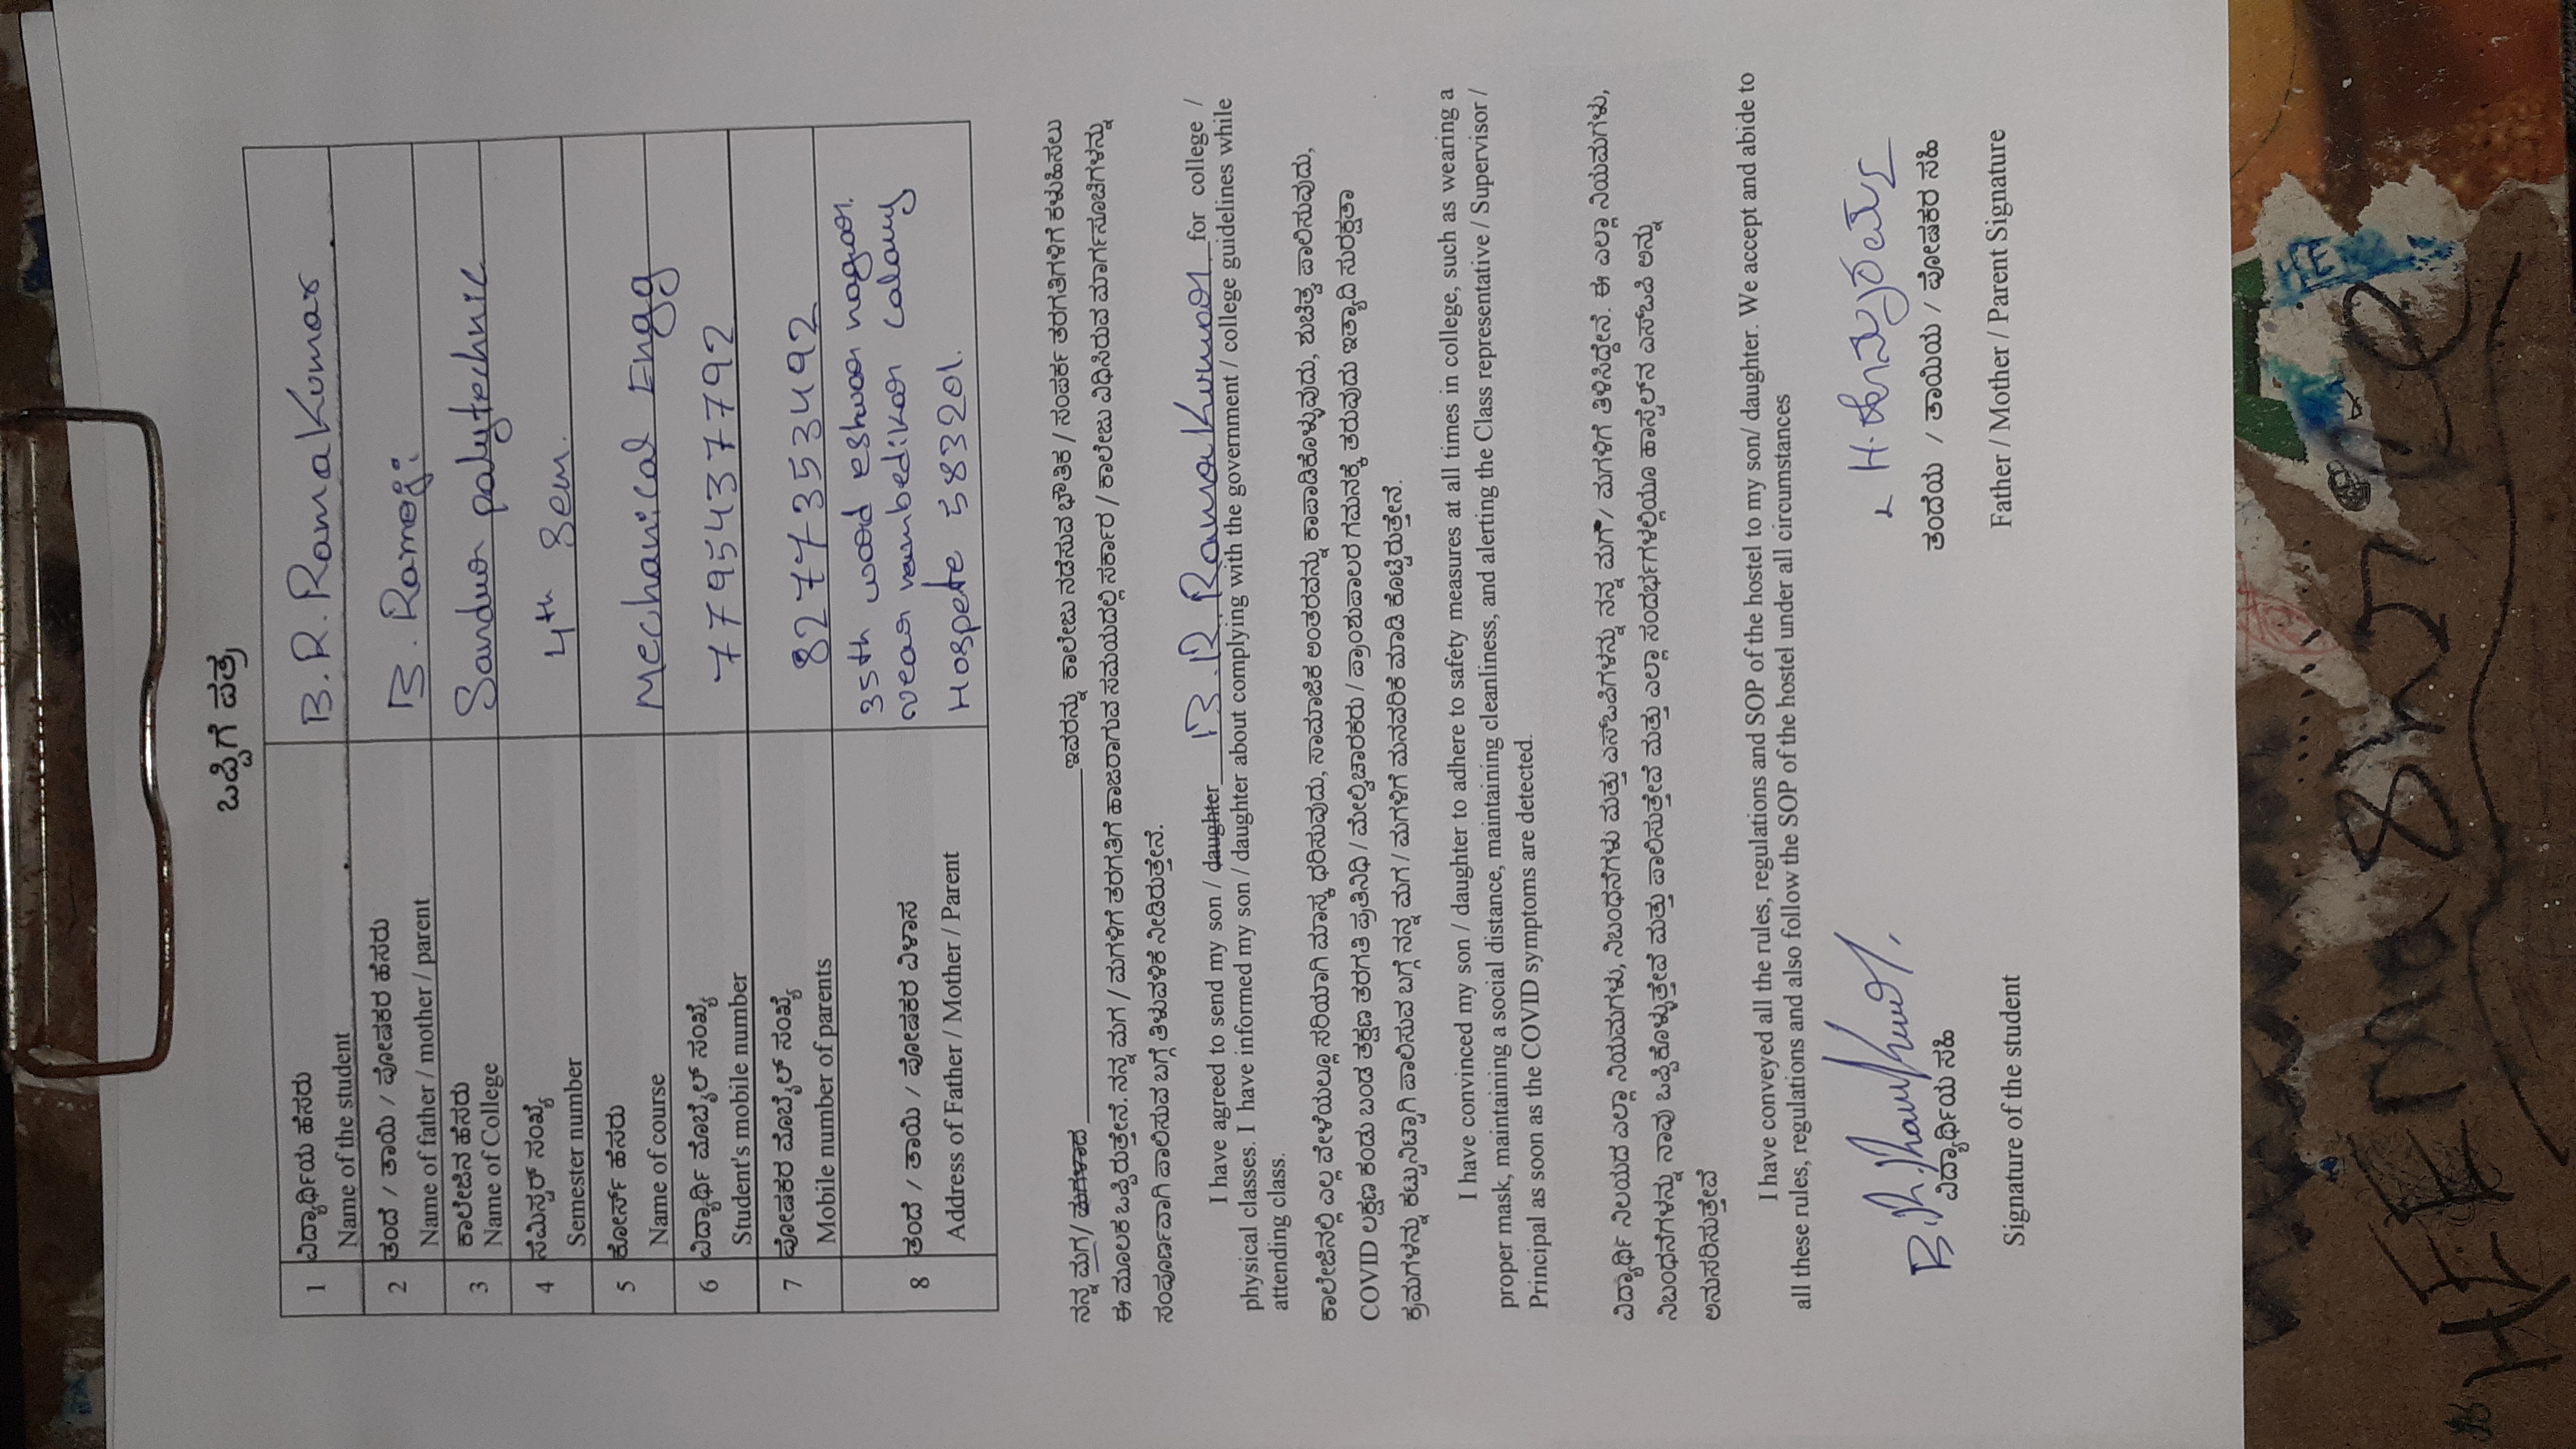 ಒಪ್ಪಿಗೆ ಪತ್ರ
1 ವಿದ್ಯಾರ್ಥಿಯ ಹೆಸರು
Name of the student B.R.RamaKumar
2 ತಂದೆ / ತಾಯಿ / ಪೋಷಕರ ಹೆಸರು
Name of father / mother / parent B. Ramoji
3 ಕಾಲೇಜಿನ ಹೆಸರು
Name of College Sandur polytechnic
4 ಸೆಮಿಸ್ಟರ್ ಸಂಖ್ಯೆ
Semester number 4th Sem.
5 ಕೋರ್ಸ್ ಹೆಸರು
Name of course Mechanical Engg
6 ವಿದ್ಯಾರ್ಥಿ ಮೊಬೈಲ್ ಸಂಖ್ಯೆ
Student's mobile number 7795437792
7 ಪೋಷಕರ ಮೊಬೈಲ್ ಸಂಖ್ಯೆ
Mobile number of parents 8277353492
35th ward eshwar nagar.
8 ತಂದೆ / ತಾಯಿ / ಪೋಷಕರ ವಿಳಾಸ near calany
Address of Father / Mother / Parent Hospete 583201.
ನನ್ನ ಮಗ/ ಮಗಳಾದ ಇವರನ್ನು ಕಾಲೇಜು ನಡೆಸುವ ಭೌತಿಕ / ಸಂಪರ್ಕ ತರಗತಿಗಳಿಗೆ ಕಳುಹಿಸಲು
ಈ ಮೂಲಕ ಒಪ್ಪಿರುತ್ತೇನೆ. ನನ್ನ ಮಗ / ಮಗಳಿಗೆ ತರಗತಿಗೆ ಹಾಜರಾಗುವ ಸಮಯದಲ್ಲಿ ಸರ್ಕಾರ / ಕಾಲೇಜು ವಿಧಿಸಿರುವ ಮಾರ್ಗಸೂಚಿಗಳನ್ನು
ಸಂಪೂರ್ಣವಾಗಿ ಪಾಲಿಸುವ ಬಗ್ಗೆ ತಿಳುವಳಿಕೆ ನೀಡಿರುತ್ತೇನೆ.
I have agreed to send my son / daughter B.R.RamaKumar for college /
physical classes. I have informed my son / daughter about complying with the government / college guidelines while
attending class.
ಕಾಲೇಜಿನಲ್ಲಿ ಎಲ್ಲ ವೇಳೆಯಲ್ಲೂ ಸರಿಯಾಗಿ ಮಾಸ್ಕ ಧರಿಸುವುದು, ಸಾಮಾಜಿಕ ಅಂತರವನ್ನು ಕಾಪಾಡಿಕೊಳ್ಳುವುದು, ಶುಚಿತ್ವ ಪಾಲಿಸುವುದು,
COVID ಲಕ್ಷಣ ಕಂಡು ಬಂಡ ತಕ್ಷಣ ತರಗತಿ ಪ್ರತಿನಿಧಿ / ಮೇಲ್ವಿಚಾರಕರು / ಪ್ರಾಂಶುಪಾಲರ ಗಮನಕ್ಕೆ ತರುವುದು ಇತ್ಯಾದಿ ಸುರಕ್ಷತಾ
ಕ್ರಮಗಳನ್ನು ಕಟ್ಟುನಿಟ್ಟಾಗಿ ಪಾಲಿಸುವ ಬಗ್ಗೆ ನನ್ನ ಮಗ / ಮಗಳಿಗೆ ಮನವರಿಕೆ ಮಾಡಿ ಕೊಟ್ಟಿರುತ್ತೇನೆ.
I have convinced my son / daughter to adhere to safety measures at all times in college, such as wearing a
proper mask, maintaining a social distance, maintaining cleanliness, and alerting the Class representative / Supervisor /
Principal as soon as the COVID symptoms are detected.
ವಿದ್ಯಾರ್ಥಿ ನಿಲಯದ ಎಲ್ಲಾ ನಿಯಮಗಳು, ನಿಬಂಧನೆಗಳು ಮತ್ತು ಎಸ್‌ಒಪಿಗಳನ್ನು ನನ್ನ ಮಗ / ಮಗಳಿಗೆ ತಿಳಿಸಿದ್ದೇನೆ. ಈ ಎಲ್ಲಾ ನಿಯಮಗಳು,
ನಿಬಂಧನೆಗಳನ್ನು ನಾವು ಒಪ್ಪಿಕೊಳ್ಳುತ್ತೇವೆ ಮತ್ತು ಪಾಲಿಸುತ್ತೇವೆ ಮತ್ತು ಎಲ್ಲಾ ಸಂದರ್ಭಗಳಲ್ಲಿಯೂ ಹಾಸ್ಟೆಲ್‌ನ ಎಸ್‌ಒಪಿ ಅನ್ನು
ಅನುಸರಿಸುತ್ತೇವೆ
I have conveyed all the rules, regulations and SOP of the hostel to my son/ daughter. We accept and abide to
all these rules, regulations and also follow the SOP of the hostel under all circumstances
B.R.RamKumar.
ವಿದ್ಯಾರ್ಥಿಯ ಸಹಿ ತಂದೆಯ / ತಾಯಿಯ / ಪೋಷಕರ ಸಹಿ
Signature of the student Father / Mother / Parent Signature